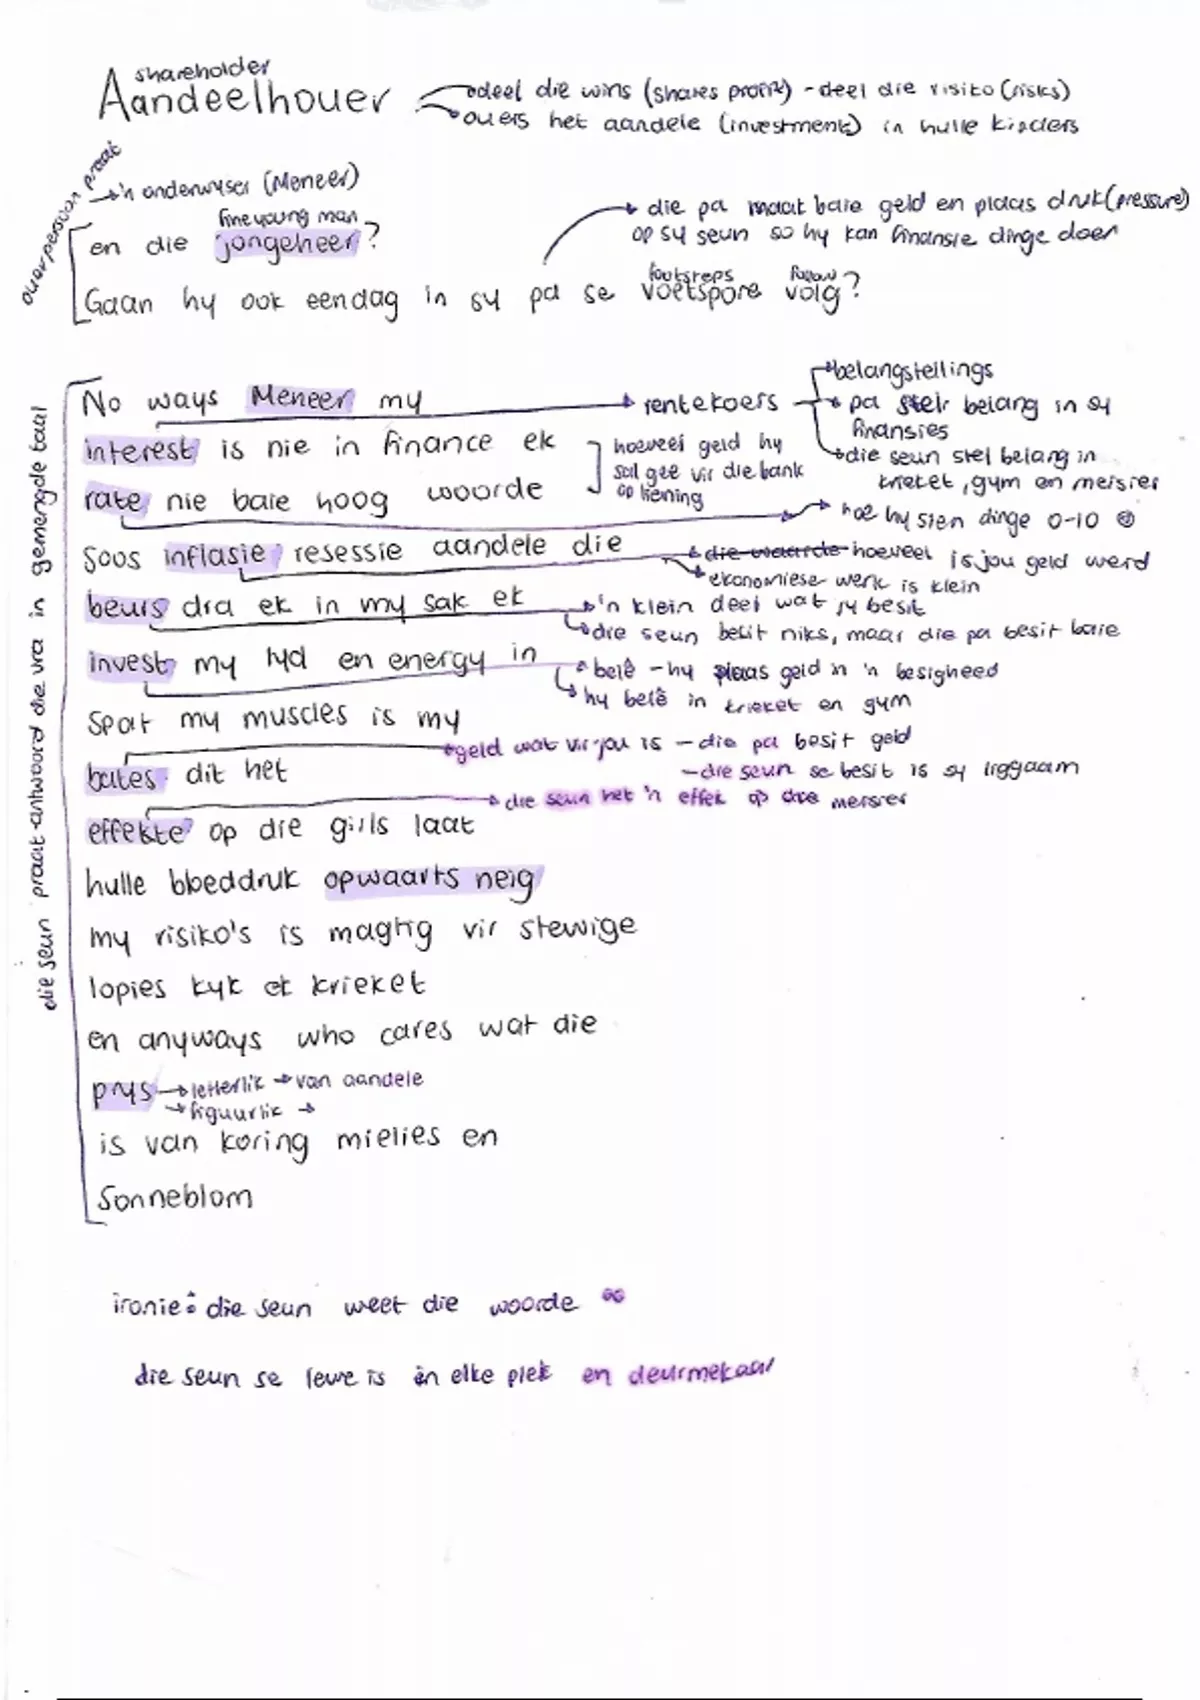 shareholder
Aandeelhouer
deel die wins (shares profit) - deel die risiko (risks)
ouers het aandele (investment) in hulle kinders
ouer persoon praat
'n onderwyser (Meneer)
fine young man
en die jongeheer?
die pa maak baie geld en plaas druk (pressure)
op sy seun so hy kan finansie dinge doen
footsteps follow
Gaan hy ook eendag in sy pa se voetspore volg?
die seun praat - antwoord die vra in gemengde taal
No ways Meneer my
rentekoers
belangstellings
pa stel belang in sy
finansies
die seun stel belang in
krieket, gym en meisies
interest is nie in finance ek
hoeveel geld hy
sal gee vir die bank
op liening
rate nie baie hoog woorde
hoe hy sien dinge 0-10
soos inflasie resessie aandele die
die waarde hoeveel is jou geld werd
ekonomiese werk is klein
beurs dra ek in my sak ek
'n klein deel wat jy besit
die seun besit niks, maar die pa besit baie
invest my tyd en energy in
belê - hy plaas geld in 'n besigheed
hy belê in krieket en gym
spar my muscles is my
geld wat vir jou is - die pa besit geld
- die seun se besit is sy liggaam
bates dit het
die seun het 'n effek op die meisies
effekte op die girls laat
hulle bloeddruk opwaarts neig
my risiko's is magtig vir stewige
lopies kyk ek krieket
en anyways who cares wat die
prys
letterlik → van aandele
figuurlik →
is van koring mielies en
Sonneblom
ironie: die seun weet die woorde
die seun se lewe is in elke plek en deurmekaar